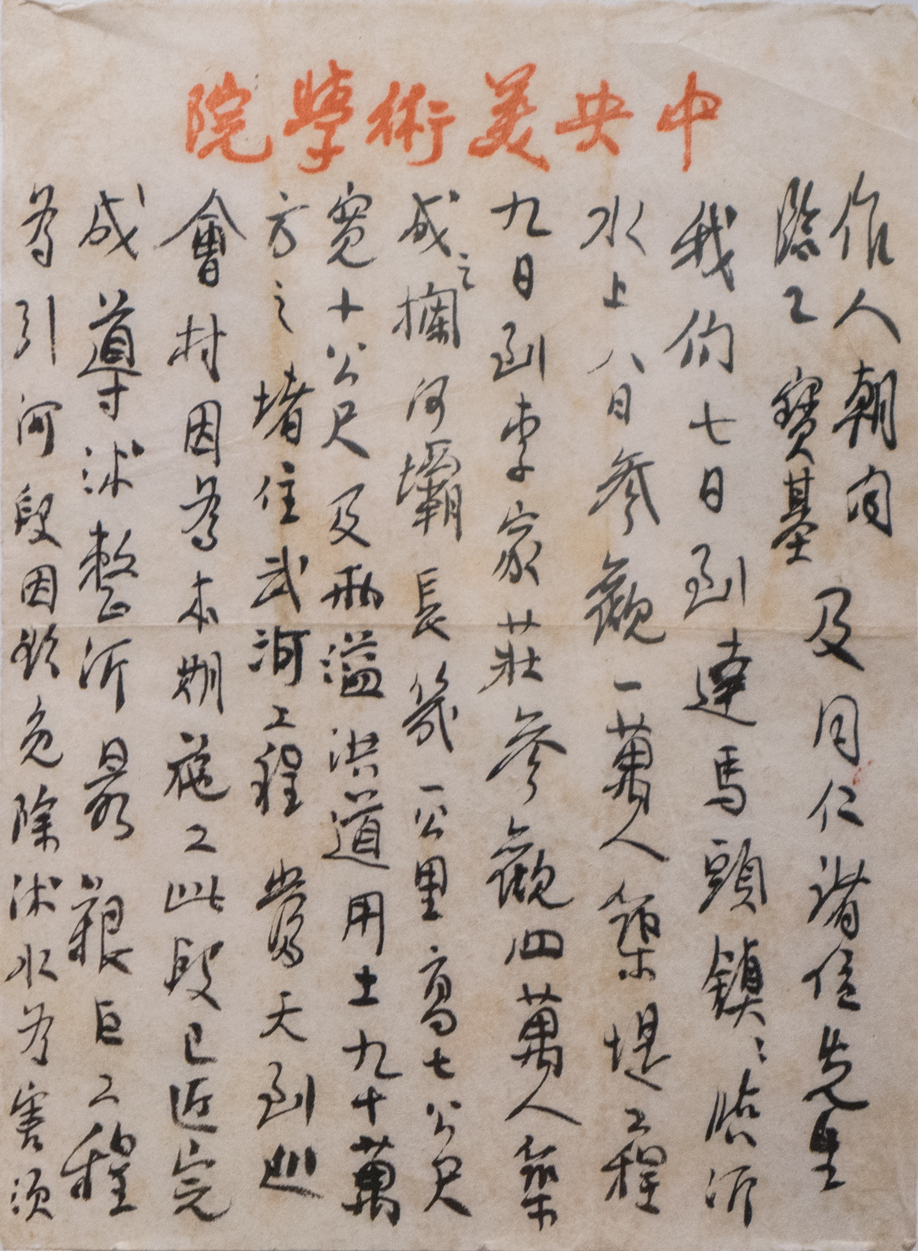 中央美術學院
作人朝聞 及同仁諸位先生
臨乙 寶基
我們七日到達馬頭鎮〻臨沂
水上八日參觀一萬人築堤工程
九日到李家莊參觀四萬人築
成之攔河壩長幾一公里高七公尺
寬十公尺及兩溢洪道用土九十萬
方之堵住武河工程 當天到
會村因為本期施工此段已近完
成 導沭整沂最艱巨工程
為引河段因欲免除沭水為害須